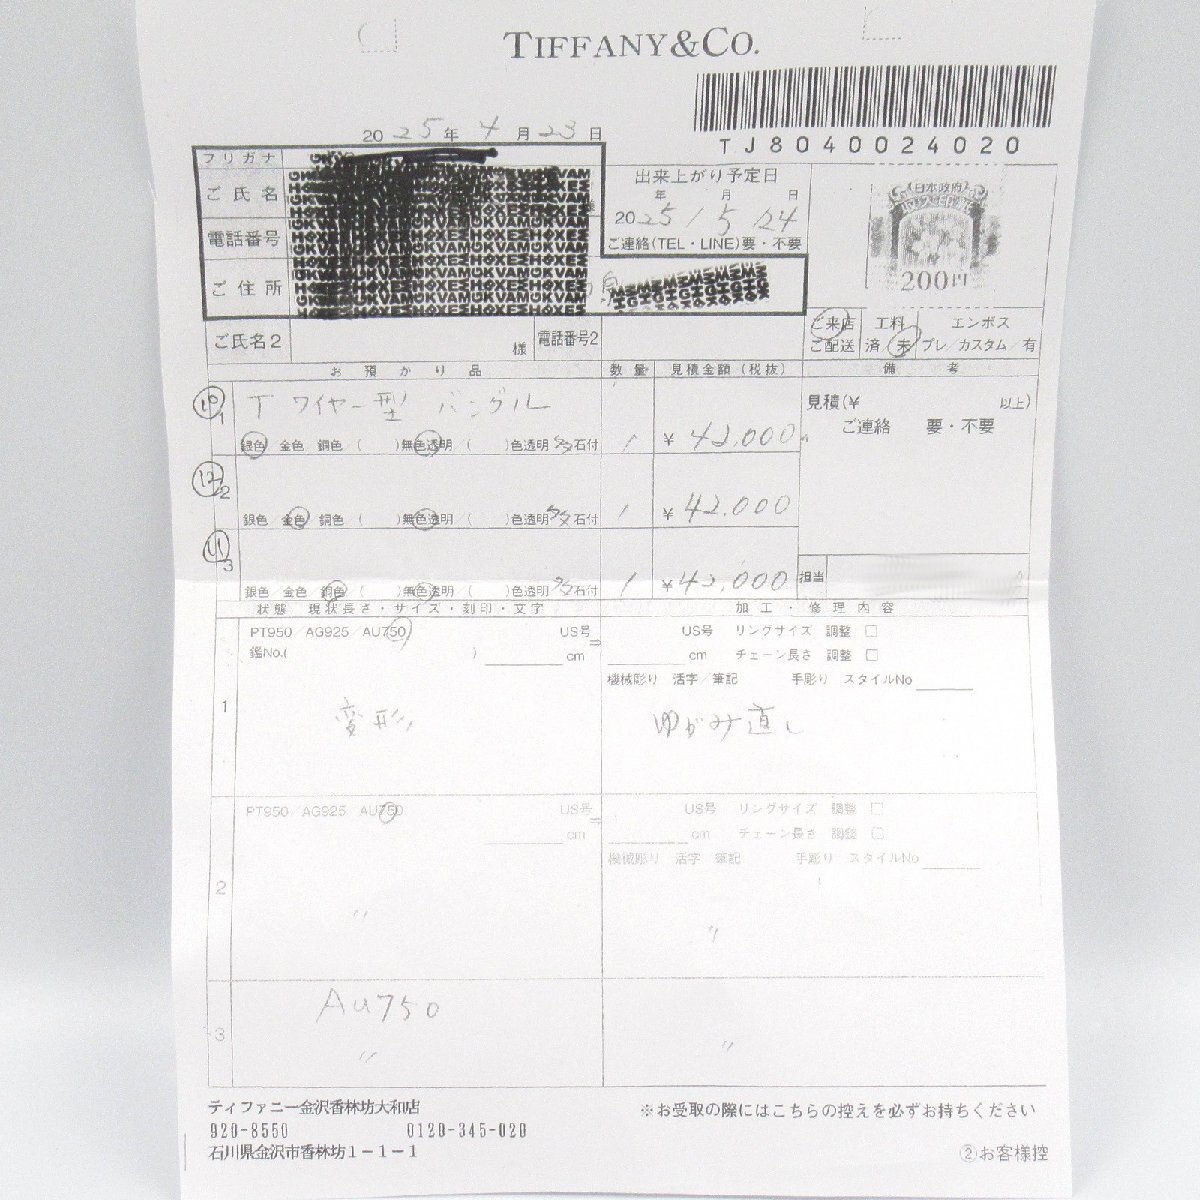 TIFFANY&CO.
TJ80400024020
2025年4月23日
フリガナ
ご氏名
電話番号
ご住所
出来上がり予定日
年 月 日
2025/5/24
ご連絡(TEL・LINE)要・不要
日本政府
200円
ご氏名2 様 電話番号2
ご来店 工料 エンボス
ご配送 済/未 ブレ/カスタム/有
お預かり品 数量 見積金額(税抜) 備考
10 1 T ワイヤー型 バングル
銀色 金色 銅色 ( )無色透明 ( )色透明 石付 1 ¥42,000
見積(¥ 以上)
ご連絡 要・不要
12 2
銀色 金色 銅色 ( )無色透明 ( )色透明 石付 1 ¥42,000
11 3
銀色 金色 銅色 ( )無色透明 ( )色透明 石付 1 ¥42,000
担当
状態 現状長さ・サイズ・刻印・文字 加工・修理内容
1
PT950/AG925/AU750 US号
鑑No.( ) cm
変形
US号 リングサイズ 調整 □
cm チェーン長さ 調整 □
機械彫り 活字/筆記 手彫り スタイルNo
ゆがみ直し
2
PT950/AG925/AU750 US号
cm
〃
US号 リングサイズ 調整 □
cm チェーン長さ 調整 □
機械彫り 活字/筆記 手彫り スタイルNo
〃
3
AU750
〃
〃
ティファニー金沢香林坊大和店
920-8550 0120-345-020
石川県金沢市香林坊1-1-1
※お受取の際にはこちらの控えを必ずお持ちください
②お客様控